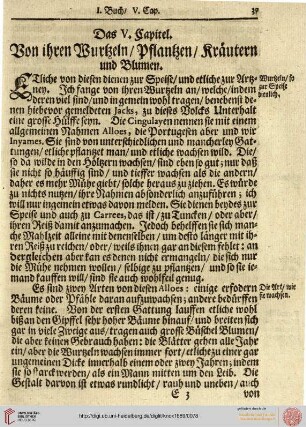 I. Buch/ V. Cap.
Das V. Capitel.
Von ihren Wurtzeln/ Pflantzen/ Kräutern
und Blumen.
Etliche von diesen dienen zur Speise/ und etliche zur Artz-
ney. Ich fange von ihren Wurtzeln an/ welche/ indem
deren viel sind/ und in gemein wohl tragen/ benebenst de-
nen hiebevor gemeldeten Jacks, zu dieses Volcks Unterhalt
eine grosse Hülffe seyn. Die Cingulayen nennen sie mit einem
allgemeinen Nahmen Alloes, die Portugesen aber und wir
Inyames. Sie sind von unterschiedlichen und mancherley Gat-
tungen/ etliche pflantzet man/ und etliche wachsen wild. Die/
so da wilde in den Höltzern wachsen/ sind eben so gut; nur daß
sie nicht so häuffig sind/ und tieffer wachsen als die andern/
daher es mehr Mühe giebt/ solche heraus zu ziehen. Es würde
zu nichts nutzen/ ihre Nahmen absonderlich anzuführen; ich
will nur ingemein etwas davon sagen. Sie dienen beydes zur
Speise und auch zu Carrees, das ist/ zu Tuncken/ oder aber/
ihren Reiß damit anzumachen. Jedoch behelffen sie sich man-
che Mahlzeit alleine mit denenselben/ um desto länger mit ih-
ren Reiß zu reichen/ oder/ weils ihnen gar an diesem fehlet: an
dergleichen aber kan es denen nicht ermangeln/ die sich nur
die Mühe nehmen wollen/ selbige zu pflantzen/ und so sie je-
mand kauffen will/ sind sie auch wohlfeil genug.
Es sind zwey Arten von diesen Alloes: einige erfodern
Bäume oder Pfähle daran aufzuwachsen; andere bedürffen
deren keine. Von der ersten Gattung lauffen etliche wohl
biß an den Gipffel sehr hoher Bäume hinauf/ und breiten sich
gar in viele Zweige aus/ tragen auch grosse Büschel Blumen/
die aber keinen Gebrauch haben: die Blätter gehen alle Jahr
ein/ aber die Wurtzeln wachsen immer fort/ etliche zu einer gar
ungemeinen Dicke innerhalb einem oder zwey Jahren; indem
sie so starck werden/ als ein Mann mitten um den Leib. Die
Gestalt davon ist etwas rundlicht/ rauh und uneben/ auch
E 3
von
Wurtzeln/ so
zur Speise
Die Art/ wie
sie wachsen.
http://digi.ub.uni-heidelberg.de/diglit/knox1689/0078